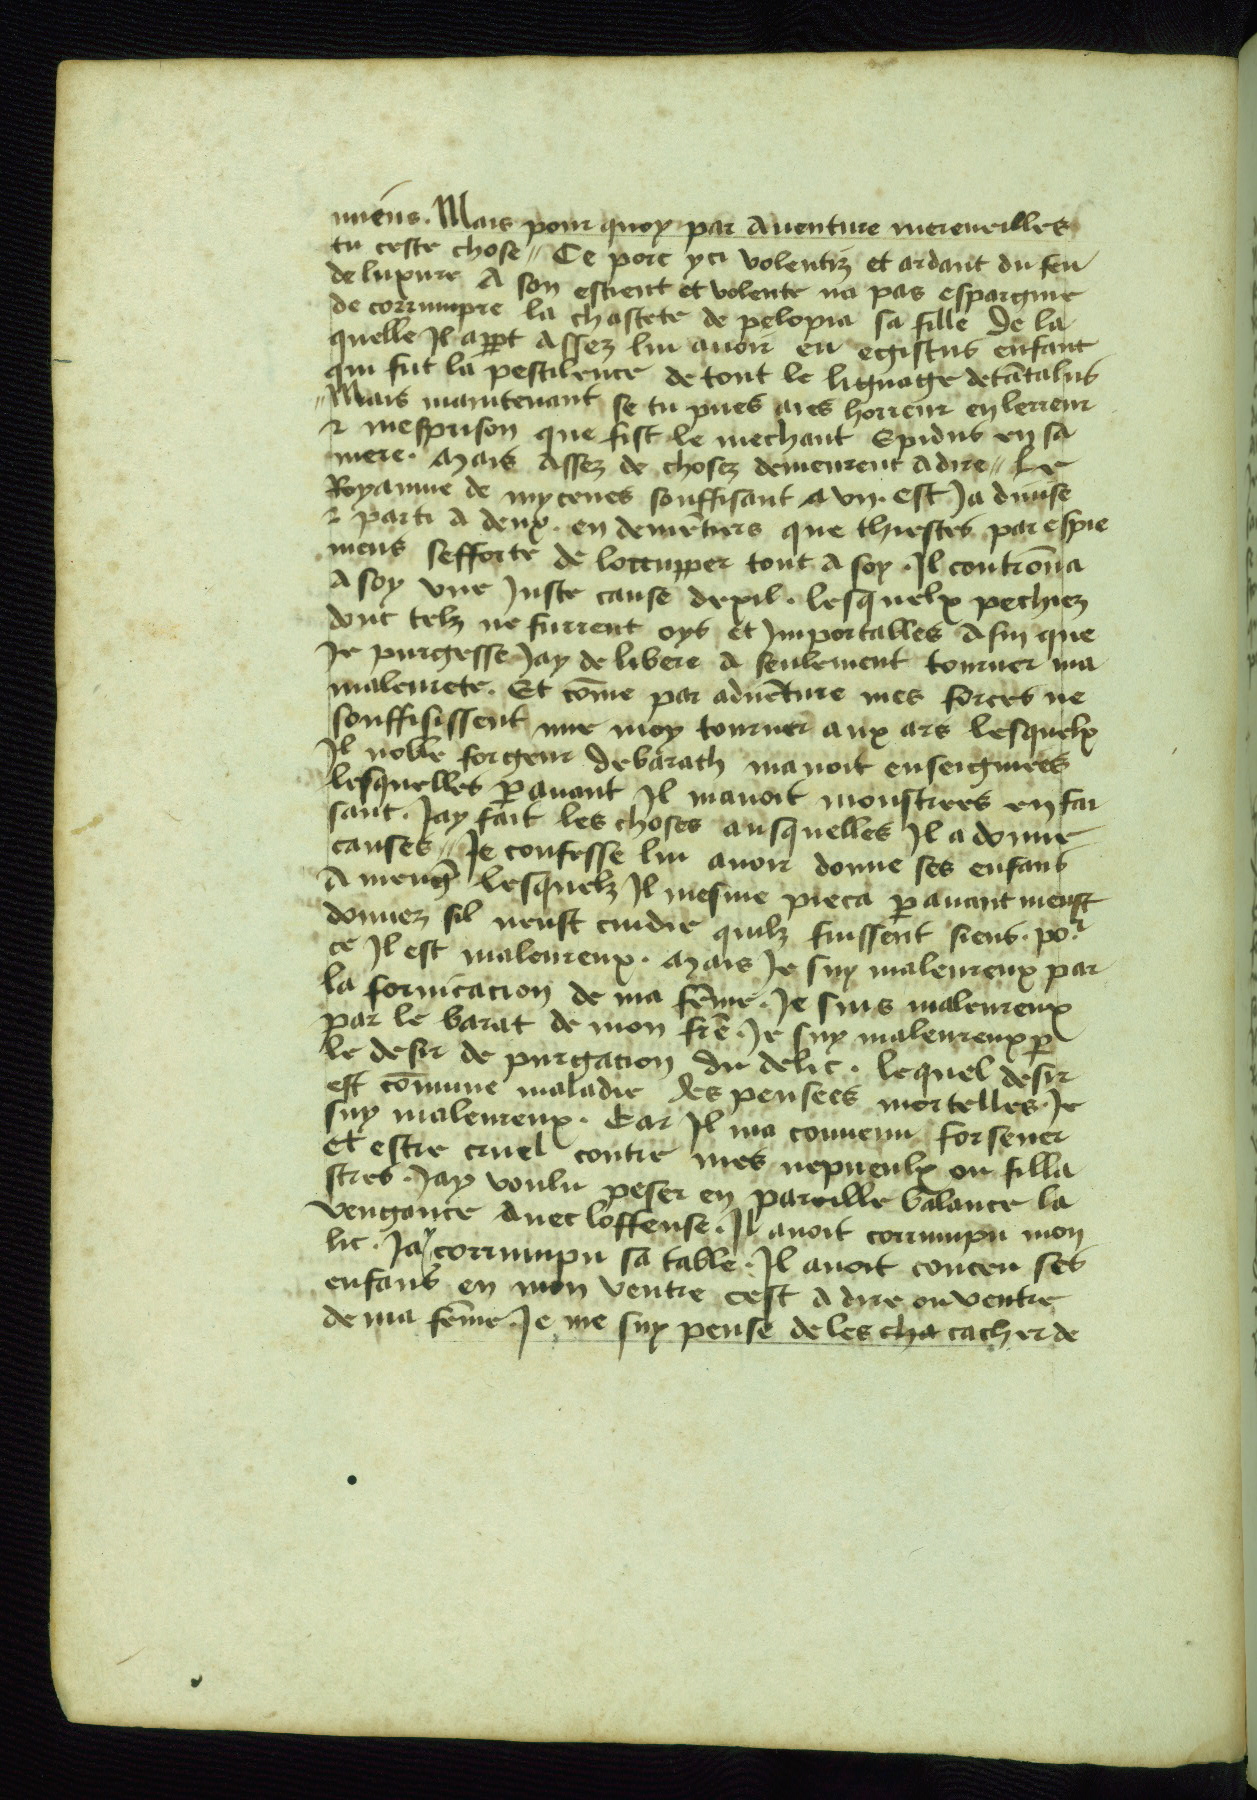 miens. Mais pour quoy par aventure merveilles
tu ceste chose // Ce porc yci volentiz et ardant du feu
de luxure A son escient et volente na pas espargnie
de corrumpre la chastete de pelopia sa fille De la
quelle Il appt Assez lui avoir eu egistus enfant
qui fut la pestilence de tout le lignage de tātalus
// Mais maintenant se tu pues aies horreur en lerreur
⁊ mesprison que fist le mechant Epidus en sa
mere. Mais Assez de chosez demeurent A dire // Le
Royaume de mycenes souffisant A vn. est Ja divise
⁊ parti A deux. en demētiers que thiestes par espie
mens sefforte de loccupper tout A soy. Il controuva
A soy vne Juste cause dexil. lesquelx pechiez
donc telz ne furrent oys et Importables Afin que
Je purgesse Jay delibere A seulement tourner ma
maleurete. Et cōme par advēture mes forces ne
souffisissent mie moy tourner aux ars lesquelx
Il noble forgeur de barath mavoit enseignees
lesquelles ꝑavant Il mavoit monstrees en fai
sant. Jay fait les choses ausquelles Il a donne
causes // Je confesse lui avoir donne ses enfans
A meng̅ lesquelz Il mesme pieca ꝑavant meust
donnez sil neust cuidie quilz fuissent siens. poʳ
ce Il est maleureux. Mais Je suy maleureux par
la fornicacion de ma fēme. Je suis maleureux
par le barat de mon frē. Je suy maleureux ꝑ
le desir de purgacion du delic. lequel desir
est cōmune maladie des pensees mortelles. Je
suy maleureux. Car Il ma convenu forsener
et estre cruel contre mes nepveulx ou filla
stres. Jay voulu peser en pareille balance la
vengance Avec loffense. Il avoit corrumpu mon
lic. Jay corrumpu sa table. Il avoit conceu ses
enfans en mon ventre cest A dire ou ventre
de ma fēme. Je me suy pense de les cha cacher de